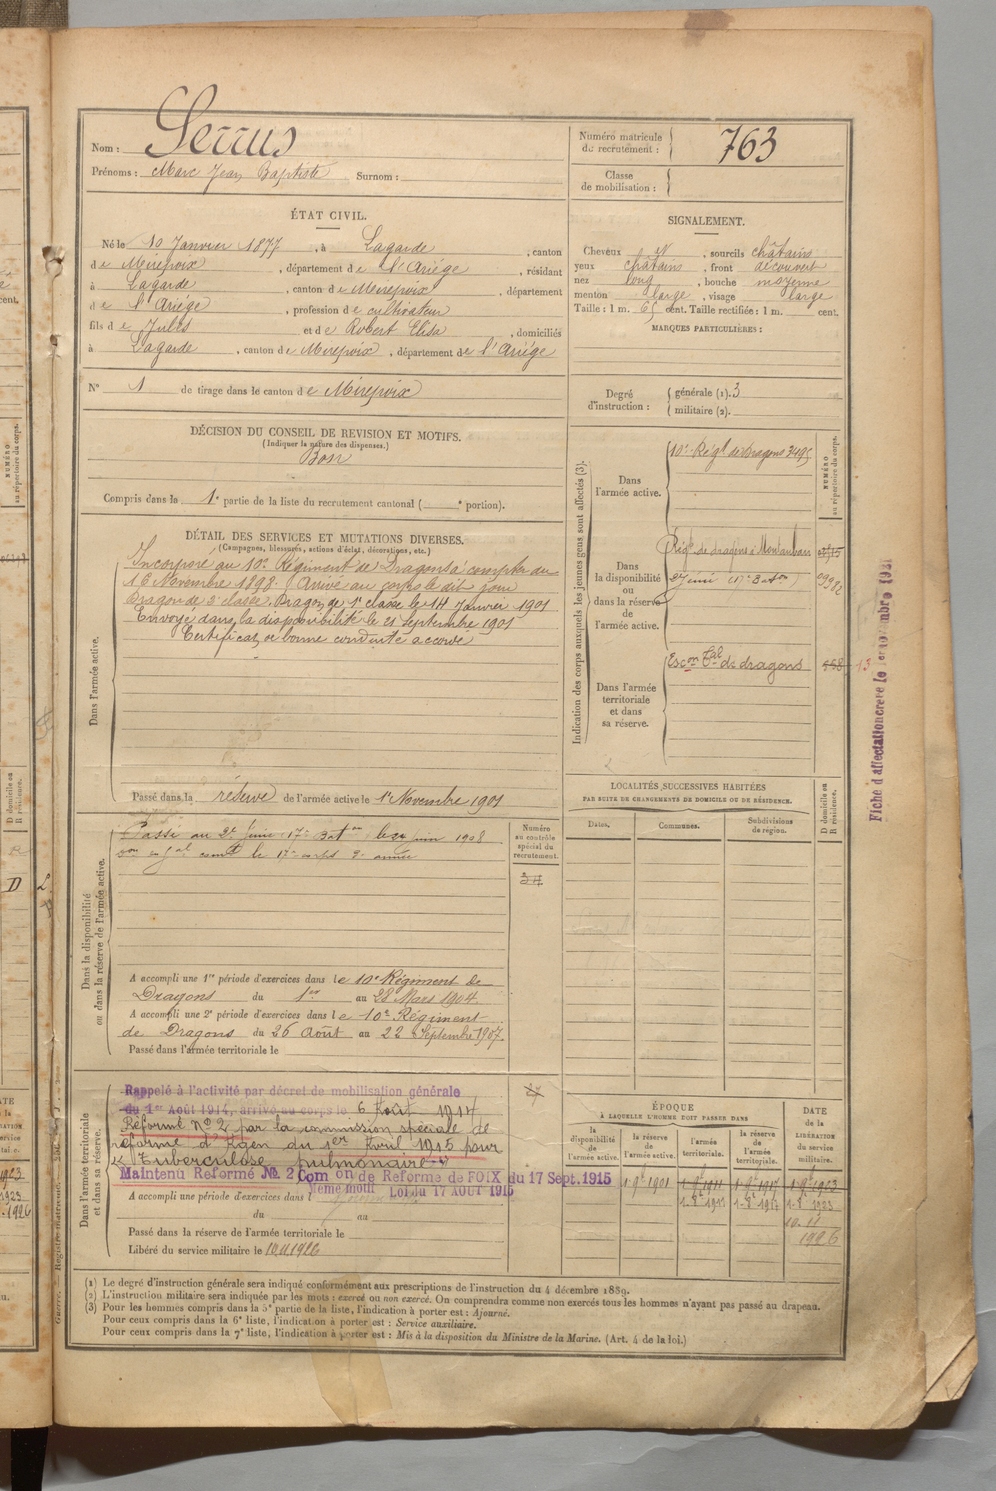 Nom : Serrus
Prénoms : Marc Jean Baptiste Surnom :
Numéro matricule de recrutement : 763
Classe de mobilisation :
ÉTAT CIVIL.
Né le 10 Janvier 1877, à Lagarde, canton
de Mirepoix, département de l'Ariége, résidant
à Lagarde, canton de Mirepoix, département
de l'Ariége, profession de cultivateur
fils de Jules et de Robert Elisa, domiciliés
à Lagarde, canton de Mirepoix, département de l'Ariége
N° 1 de tirage dans le canton de Mirepoix
SIGNALEMENT.
Cheveux et, sourcils châtains
yeux châtains, front découvert
nez long, bouche moyenne
menton large, visage large
Taille : 1 m. 65 cent. Taille rectifiée : 1 m. cent.
MARQUES PARTICULIÈRES :
Degré d'instruction :
générale (1). 3
militaire (2).
DÉCISION DU CONSEIL DE REVISION ET MOTIFS.
(Indiquer la nature des dispenses.)
Bon
Compris dans la 1e partie de la liste du recrutement cantonal ( e portion).
DÉTAIL DES SERVICES ET MUTATIONS DIVERSES.
(Campagnes, blessures, actions d'éclat, décorations, etc.)
Dans l'armée active.
Incorporé au 10e Régiment de Dragons à compter du
16 Novembre 1898. Arrivé au corps le dit jour
Dragon de 2e classe. Dragon de 1e classe le 14 Janvier 1901
Envoyé dans la disponibilité le 21 Septembre 1901
Certificat de bonne conduite accordé
Passé dans la réserve de l'armée active le 1er Novembre 1901
Indication des corps auxquels les jeunes gens sont affectés (3).
NUMÉRO au répertoire du corps.
Dans l'armée active.
10e Régt de Dragons 3495
Dans la disponibilité ou dans la réserve de l'armée active.
Régt de dragons à Montauban
2e génie (17e Baton)
Dans l'armée territoriale et dans sa réserve.
Escon Tal de dragons
13
Fiche d'affectation créée le
Dans la disponibilité ou dans la réserve de l'armée active.
Passé au 2e génie (17e Baton) le juin 1908
Numéro au contrôle spécial du recrutement.
34
A accompli une 1re période d'exercices dans le 10e Régiment de
Dragons du 1er au 28 Mars 1904.
A accompli une 2e période d'exercices dans le 10e Régiment
de Dragons du 26 Août au 22 Septembre 1907.
Passé dans l'armée territoriale le
LOCALITÉS SUCCESSIVES HABITÉES
PAR SUITE DE CHANGEMENTS DE DOMICILE OU DE RÉSIDENCE.
Dates.
Communes.
Subdivisions de région.
D domicile ou R résidence.
Dans l'armée territoriale et dans sa réserve.
Rappelé à l'activité par décret de mobilisation générale
du 1er Août 1914, arrivé au corps le 6 Août 1914
Réformé N° 2 par la commission spéciale de
réforme d'Agen du 1er Avril 1915 pour
« Tuberculose pulmonaire »
Maintenu Réformé No. 2 Comon de Réforme de FOIX du 17 Sept. 1915
Même motif Loi du 17 AOUT 1915
A accompli une période d'exercices dans l
du au
Passé dans la réserve de l'armée territoriale le
Libéré du service militaire le 10.11.1926
ÉPOQUE
À LAQUELLE L'HOMME DOIT PASSER DANS
la disponibilité de l'armée active.
la réserve de l'armée active.
l'armée territoriale.
la réserve de l'armée territoriale.
DATE de la LIBÉRATION du service militaire.
1-9e 1901
1-9e 1911
1-9e 1917
1-9e 1923
1-8e 1917
10-11
1926
(1) Le degré d'instruction générale sera indiqué conformément aux prescriptions de l'instruction du 4 décembre 1889.
(2) L'instruction militaire sera indiquée par les mots : exercé ou non exercé. On comprendra comme non exercés tous les hommes n'ayant pas passé au drapeau.
(3) Pour les hommes compris dans la 5e partie de la liste, l'indication à porter est : Ajourné.
Pour ceux compris dans la 6e liste, l'indication à porter est : Service auxiliaire.
Pour ceux compris dans la 7e liste, l'indication à porter est : Mis à la disposition du Ministre de la Marine. (Art. 4 de la loi.)